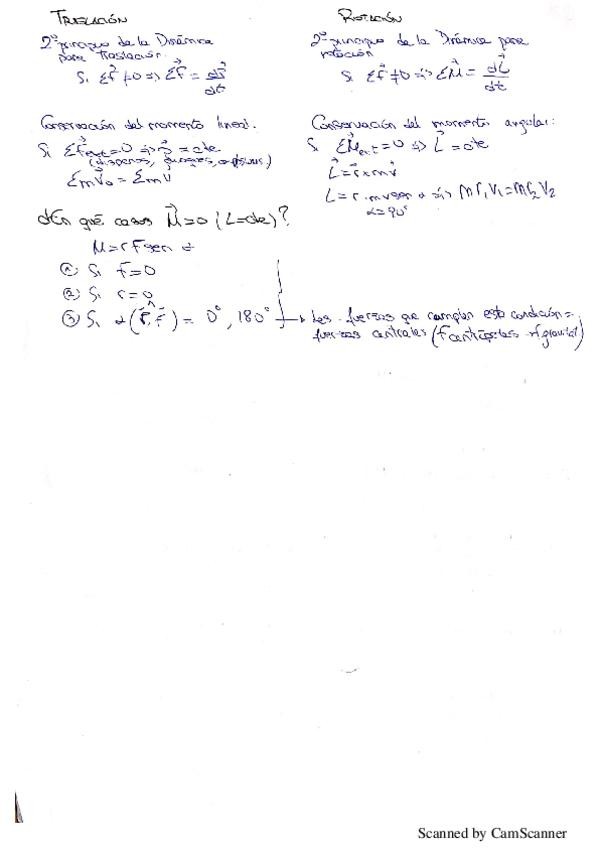 TRASLACIÓN
2º principio de la Dinámica
para traslación.
Si Σf⃗ ≠ 0 => Σf⃗ = dp⃗/dt
Conservación del momento lineal.
Si Σf⃗ext = 0 => p⃗ = cte
(disparos, choques, explosiones)
Σmv⃗₀ = Σmv⃗
ROTACIÓN
2º principio de la Dinámica para
rotación
Si Σf⃗ ≠ 0 => ΣM⃗ = dL⃗/dt
Conservación del momento angular:
Si ΣM⃗ext = 0 => L⃗ = cte
L⃗ = r⃗ x mv⃗
L = r · mv sen α => m r₁ v₁ = m r₂ v₂
α = 90°
¿En qué casos M⃗ = 0 (L = cte)?
M = r F sen α
① Si F = 0
② Si r = 0
③ Si α (r⃗, F⃗) = 0°, 180° → Las fuerzas que cumplen esta condición =
fuerzas centrales (F centrípetas y F gravitat)
Scanned by CamScanner